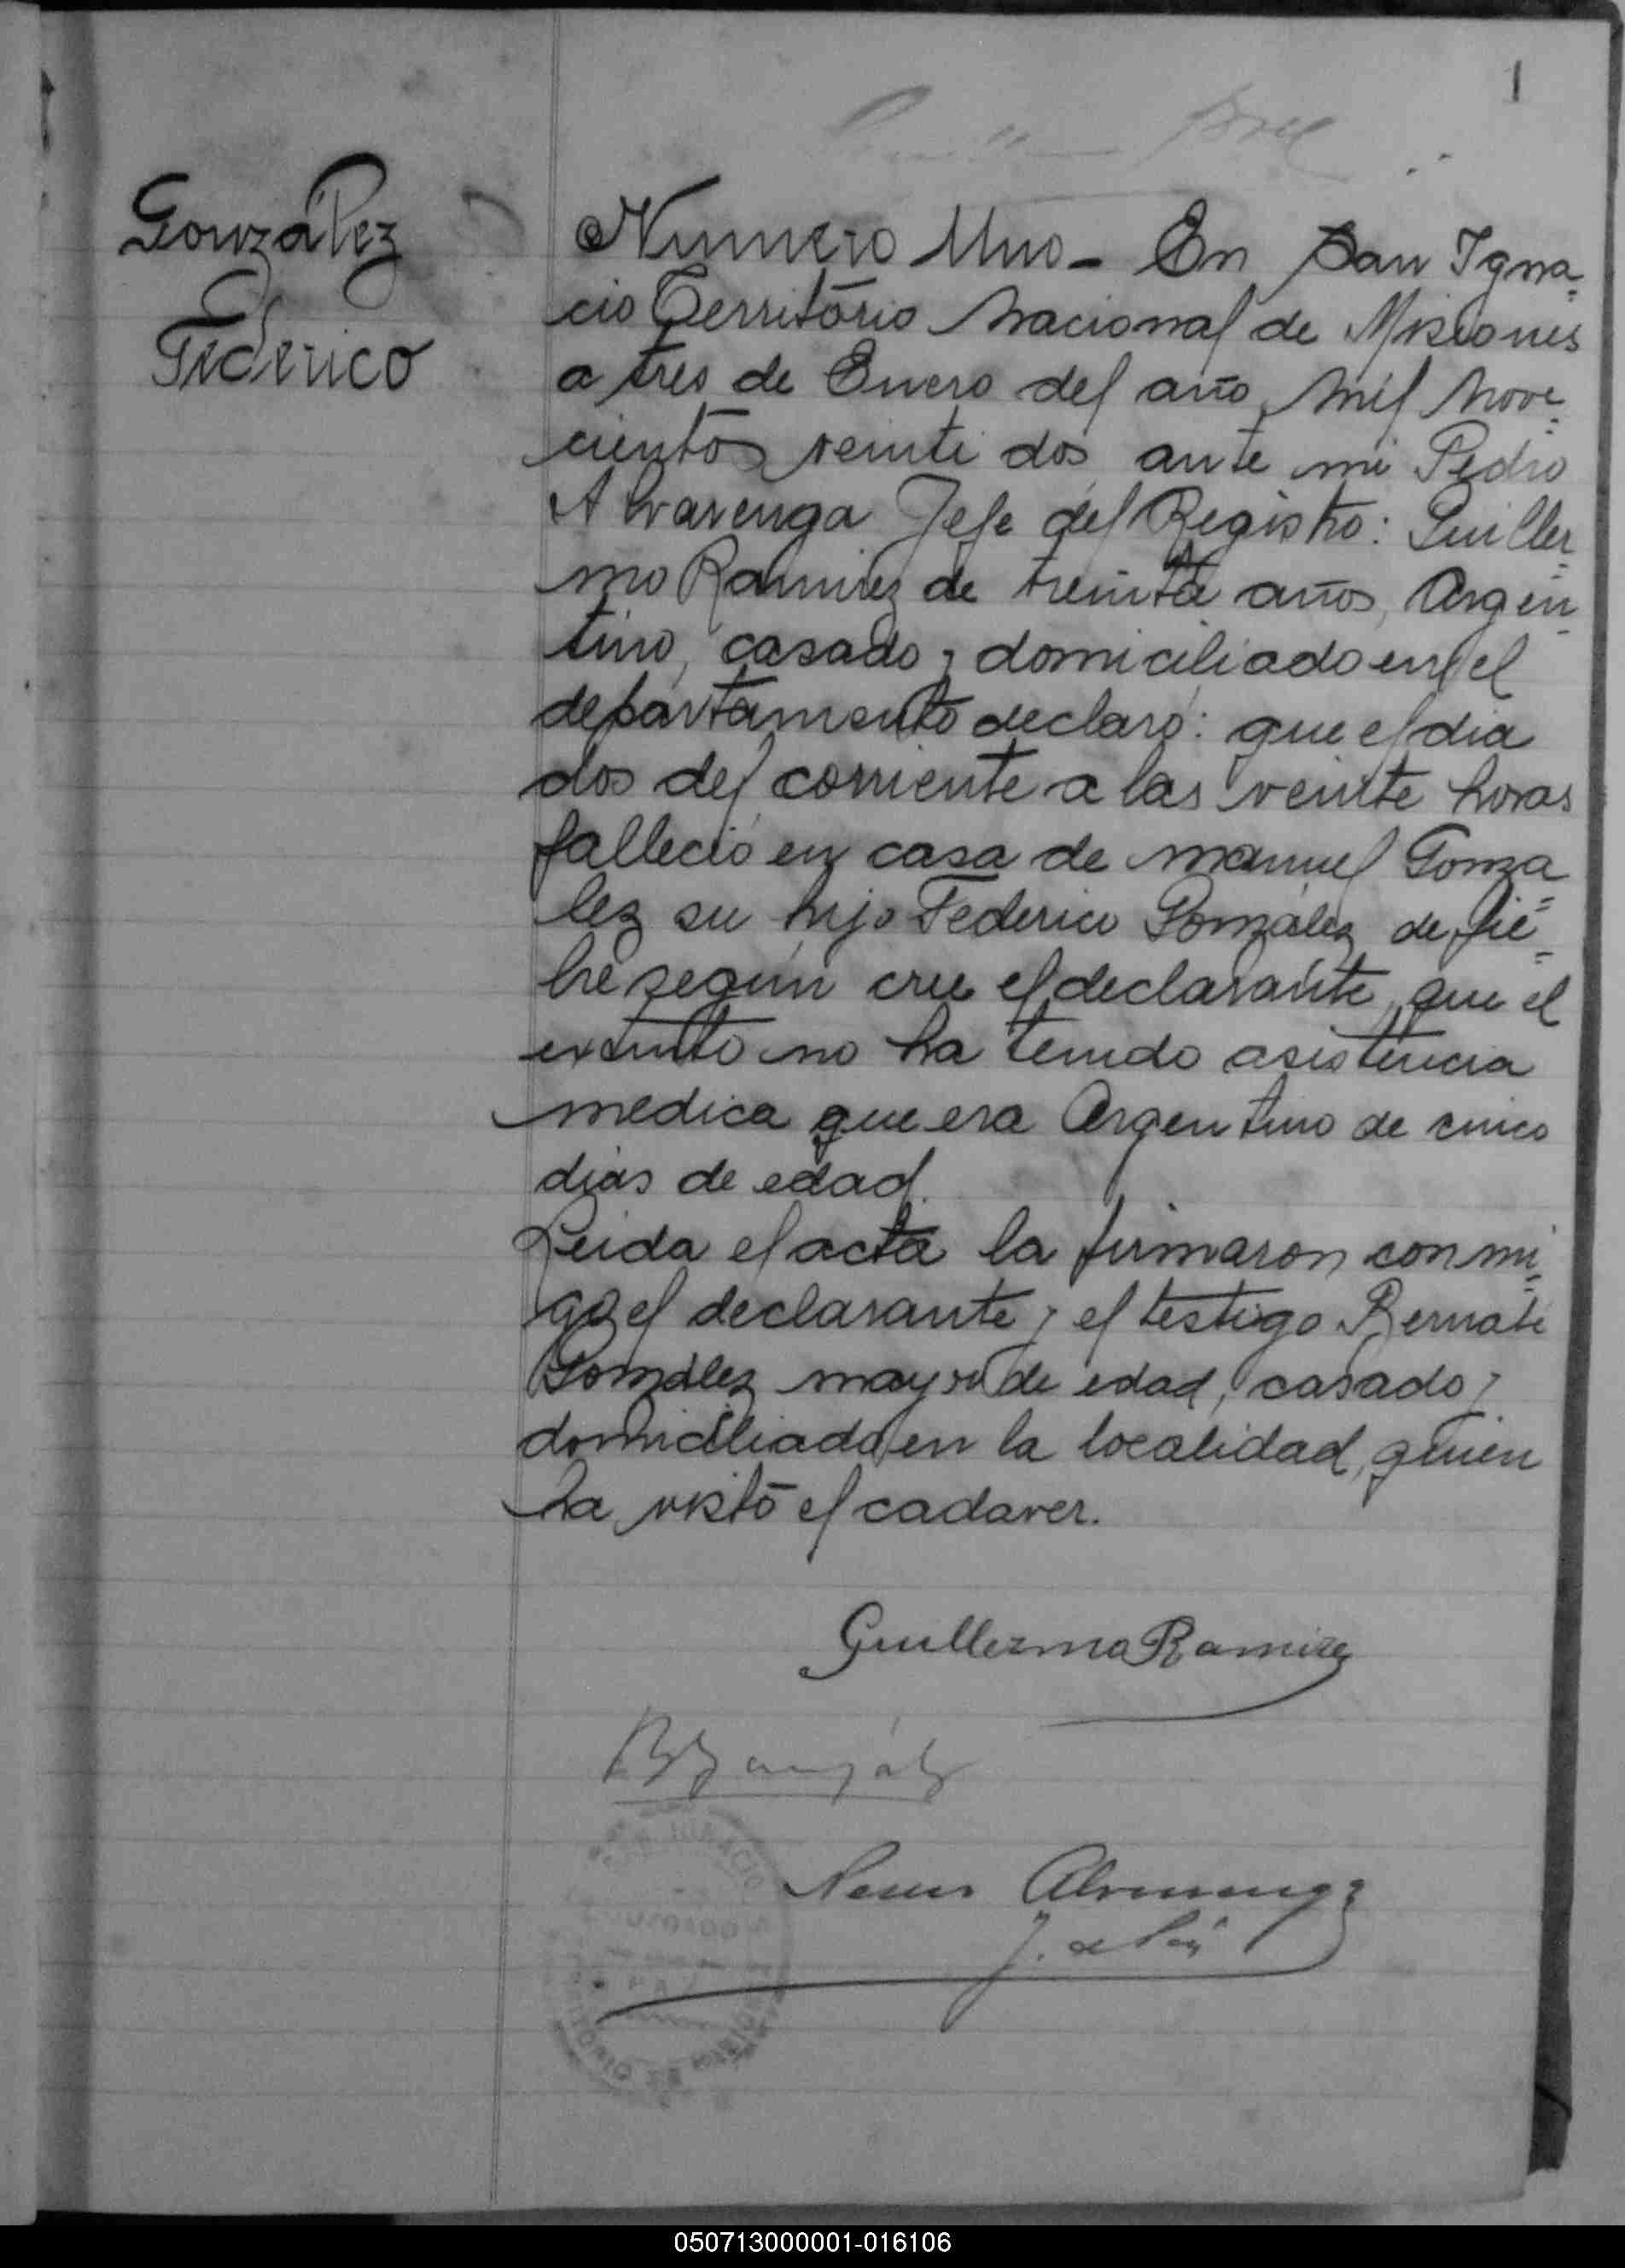 1
González
Federico
Numero Uno - En San Igna=
cio Territorio Nacional de Misiones
a tres de Enero del año mil nove=
cientos veinti dos, ante mi Pedro
Alvarenga Jefe del Registro: Guiller=
mo Ramirez de treinta años, Argen=
tino, casado, domiciliado en el
departamento declaró: que el dia
dos del corriente a las veinte horas
falleció en casa de manuel Gonza=
lez su hijo Federico González de fie=
bre según cree el declarante, que el
extinto no ha tenido asistencia
medica que era Argentino de cinco
dias de edad.
Leida el acta la firmaron conmi=
go el declarante y el testigo Bernabé
González mayor de edad, casado y
domiciliado en la localidad, quien
ha visto el cadaver.
Guillermo Ramirez
B González
Alvarenga
J. de Paz
050713000001-016106